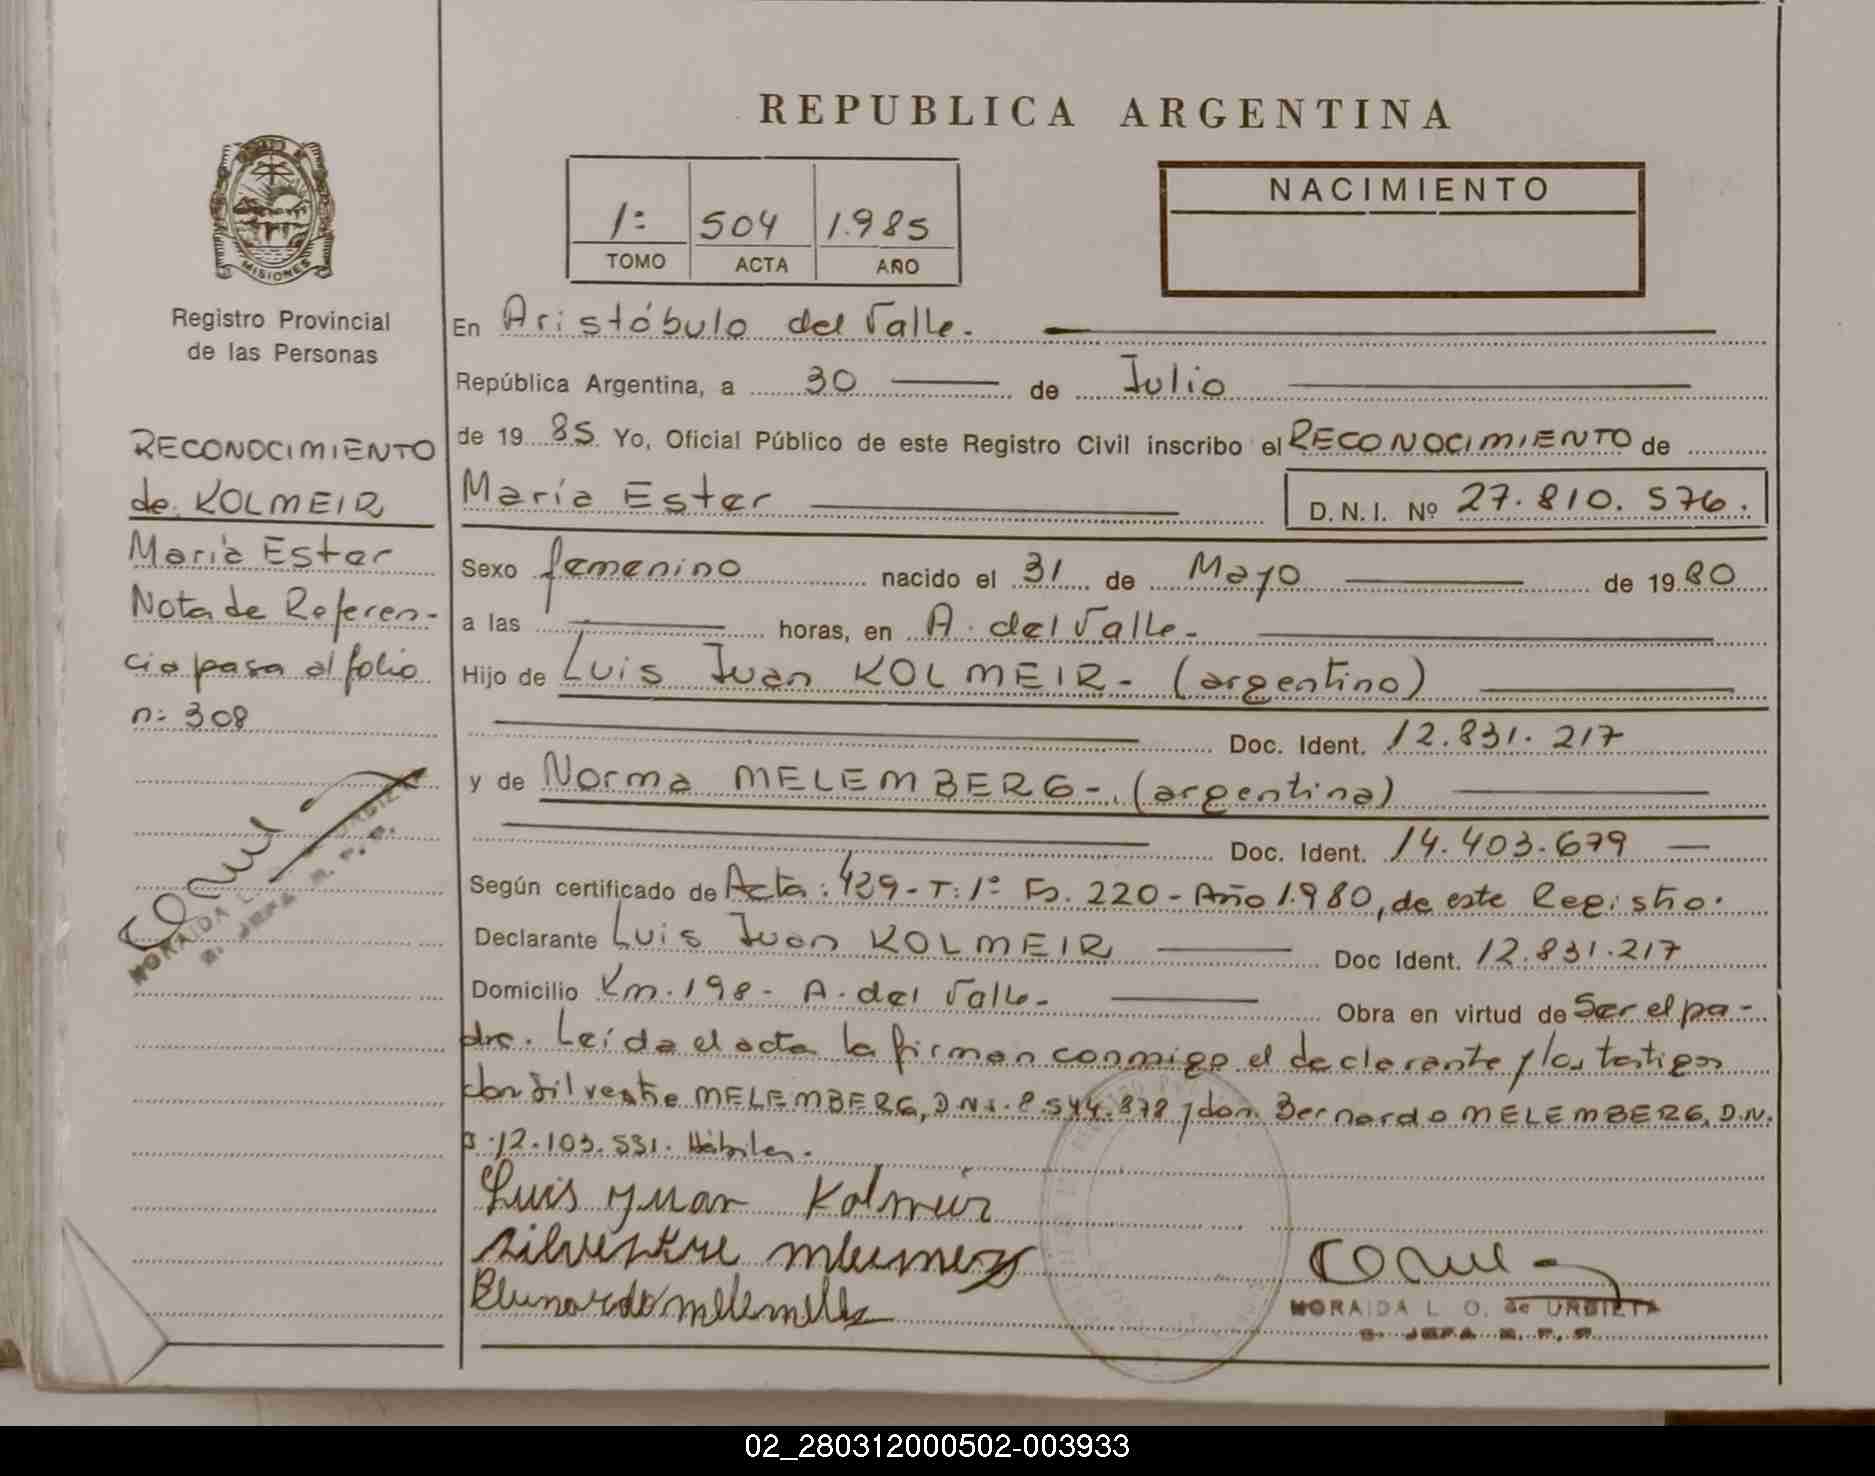 REPUBLICA ARGENTINA
NACIMIENTO
1: 504 1.985
TOMO ACTA AÑO
MISIONES
Registro Provincial
de las Personas
RECONOCIMIENTO
de KOLMEIR
María Ester
Nota de Referen-
cia pasa al folio
n: 308
En Aristóbulo del Valle.
República Argentina, a 30 de Julio
de 19 85 Yo, Oficial Público de este Registro Civil inscribo el RECONOCIMIENTO de
María Ester D.N.I. Nº 27.810.576.
Sexo femenino nacido el 31 de Mayo de 19 80
a las horas, en A. del Valle-
Hijo de Luis Juan KOLMEIR- (argentino)
Doc. Ident. 12.831.217
y de Norma MELEMBERG-. (argentina)
Doc. Ident. 14.403.679
Según certificado de Acta: 439- T: 1º Fs. 220- Año 1.980, de este Registro.
Declarante Luis Juan KOLMEIR Doc Ident. 12.831.217
Domicilio Km. 198- A. del Valle- Obra en virtud de Ser el pa-
dre. Leída el acta la firman conmigo el declarante y los testigos
don Silvestre MELEMBERG, D.N.I. 8.544.878 y don Bernardo MELEMBERG, D.N.
I. 12.103.531. Hábiles.
Luis Juan Kolmeir
Silvestre
MORAIDA L. O. de URBIETA
02_280312000502-003933